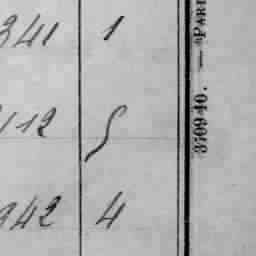 341 1
112 5
942 4
370940. — PARI